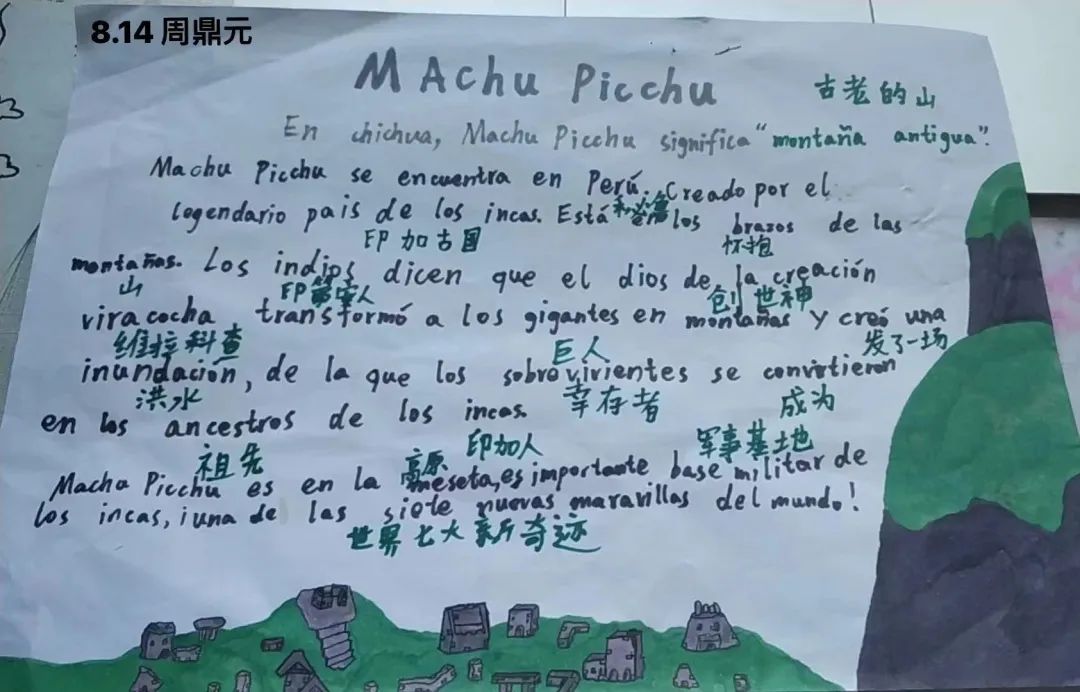 8.14 周鼎元
MAchu Picchu
古老的山
En chichua, Machu Picchu significa "montaña antigua".
Machu Picchu se encuentra en Perú. Creado por el
legendario pais de los incas. Está en los brazos de las
印加古国 怀抱
montañas. Los indios dicen que el dios de la creación
山 印第安人 创世神
viracocha transformó a los gigantes en montañas y creó una
维拉科查 巨人 发了一场
inundación, de la que los sobrevivientes se convirtieron
洪水 幸存者 成为
en los ancestros de los incas.
祖先 印加人 军事基地
Machu Picchu es en la meseta, es importante base militar de
高原
los incas, ¡una de las siete nuevas maravillas del mundo!
世界七大新奇迹